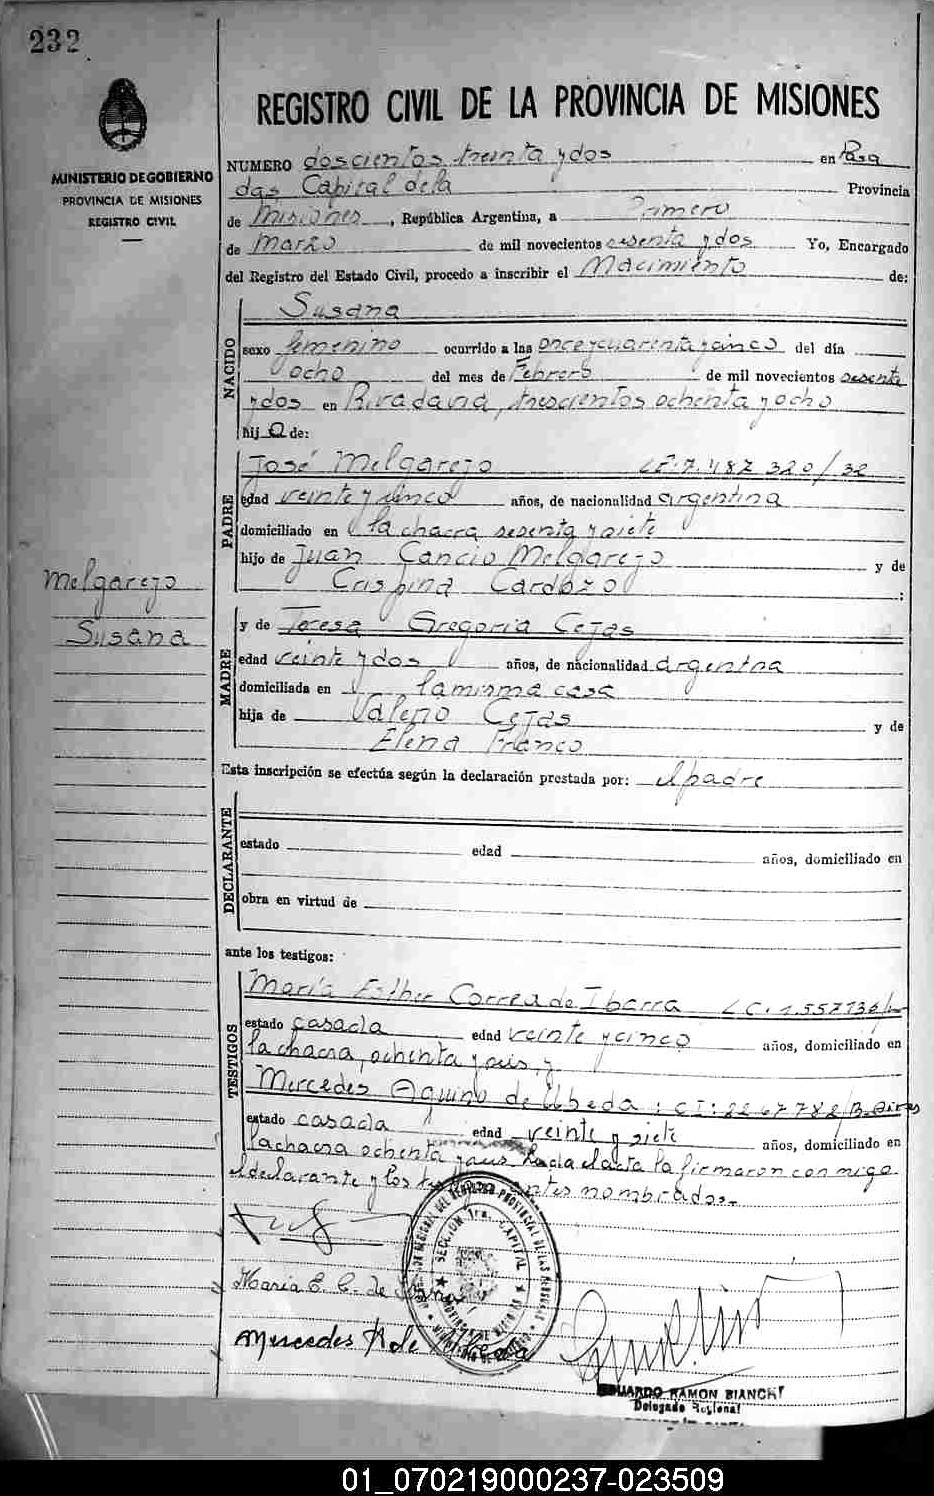 232
MINISTERIO DE GOBIERNO
PROVINCIA DE MISIONES
REGISTRO CIVIL
REGISTRO CIVIL DE LA PROVINCIA DE MISIONES
NUMERO doscientos treinta y dos en Posa
das Capital dela Provincia
de Misiones, República Argentina, a Primero
de Marzo de mil novecientos sesenta y dos Yo, Encargado
del Registro del Estado Civil, procedo a inscribir el Nacimiento de:
NACIDO
Susana
sexo femenino ocurrido a las once y cuarenta y cinco del día
ocho del mes de Febrero de mil novecientos sesenta
y dos en Rivadavia, trescientos ochenta y ocho
hija de:
PADRE
José Melgarejo 7.487.320/32
edad veinte y cinco años, de nacionalidad argentina
domiciliado en la chacra sesenta y siete
hijo de Juan Cancio Melgarejo y de
Crispina Cardozo :
Melgarejo
Susana
MADRE
y de Teresa Gregoria Cejas
edad veinte y dos años, de nacionalidad argentina
domiciliada en la misma casa
hija de Valerio Cejas y de
Elena Franco
Esta inscripción se efectúa según la declaración prestada por: el padre
DECLARANTE
estado edad años, domiciliado en
obra en virtud de
ante los testigos:
TESTIGOS
María Esther Correa de Ibarra L C. 1.557136/
estado casada edad veinte y cinco años, domiciliado en
la chacra, ochenta y seis, y
Mercedes Aquino de Ubeda: CI: 2267782/B. Aires
estado casada edad veinte y siete años, domiciliado en
la chacra ochenta y seis Leida el acta la firmaron conmigo
el declarante y los antes nombrados.-
SECCION 1ra. CAPITAL
Maria E. C. de
Mercedes A de
EDUARDO RAMON BIANCHI
Delegado Regional
01_070219000237-023509